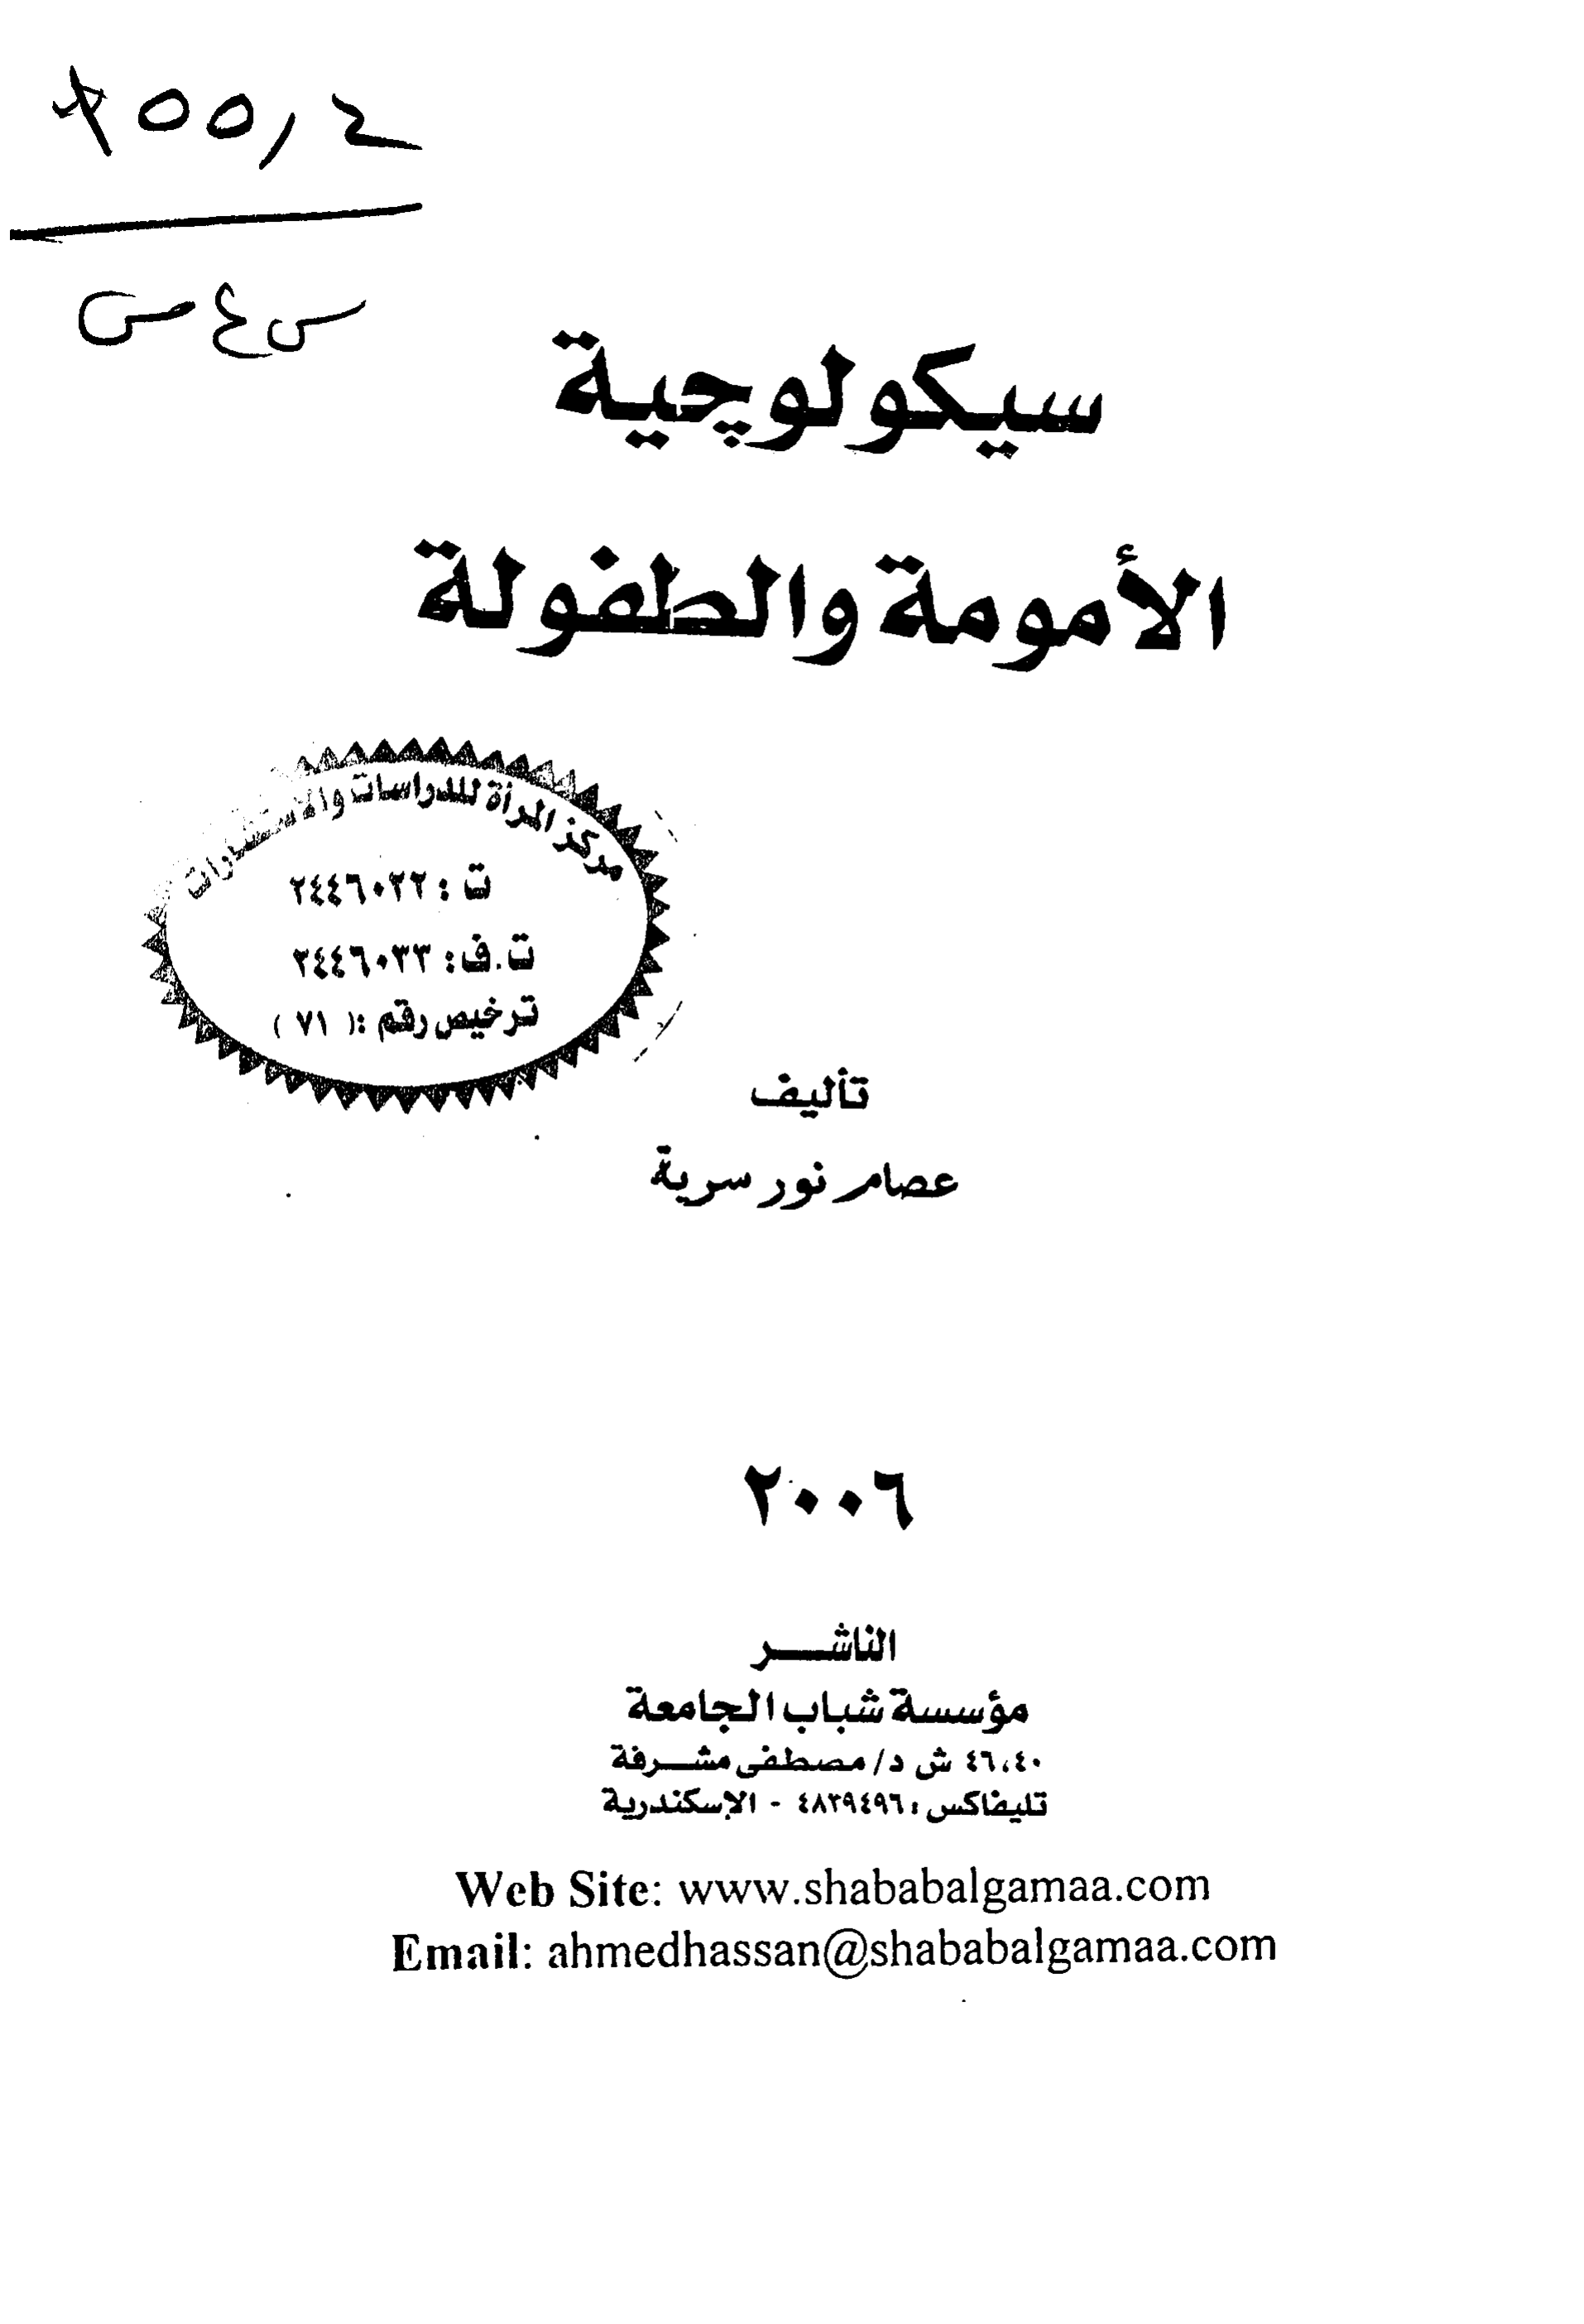 ١٥٥,٤
س ع ص
سيكولوچية
الأمومة والطفولة
مركز المرأة للدراسات والاستشارات
ت : ٢٤٤٦٠٢٢
ت.ف: ٢٤٤٦٠٣٣
ترخيص رقم :( ٧١ )
تأليف
عصام نور سرية
٢٠٠٦
الناشــر
مؤسسة شباب الجامعة
٤٦،٤٠ ش د/ مصطفى مشــرفة
تليفاكس : ٤٨٣٩٤٩٦ - الإسكندرية
Web Site: www.shababalgamaa.com
Email: ahmedhassan@shababalgamaa.com